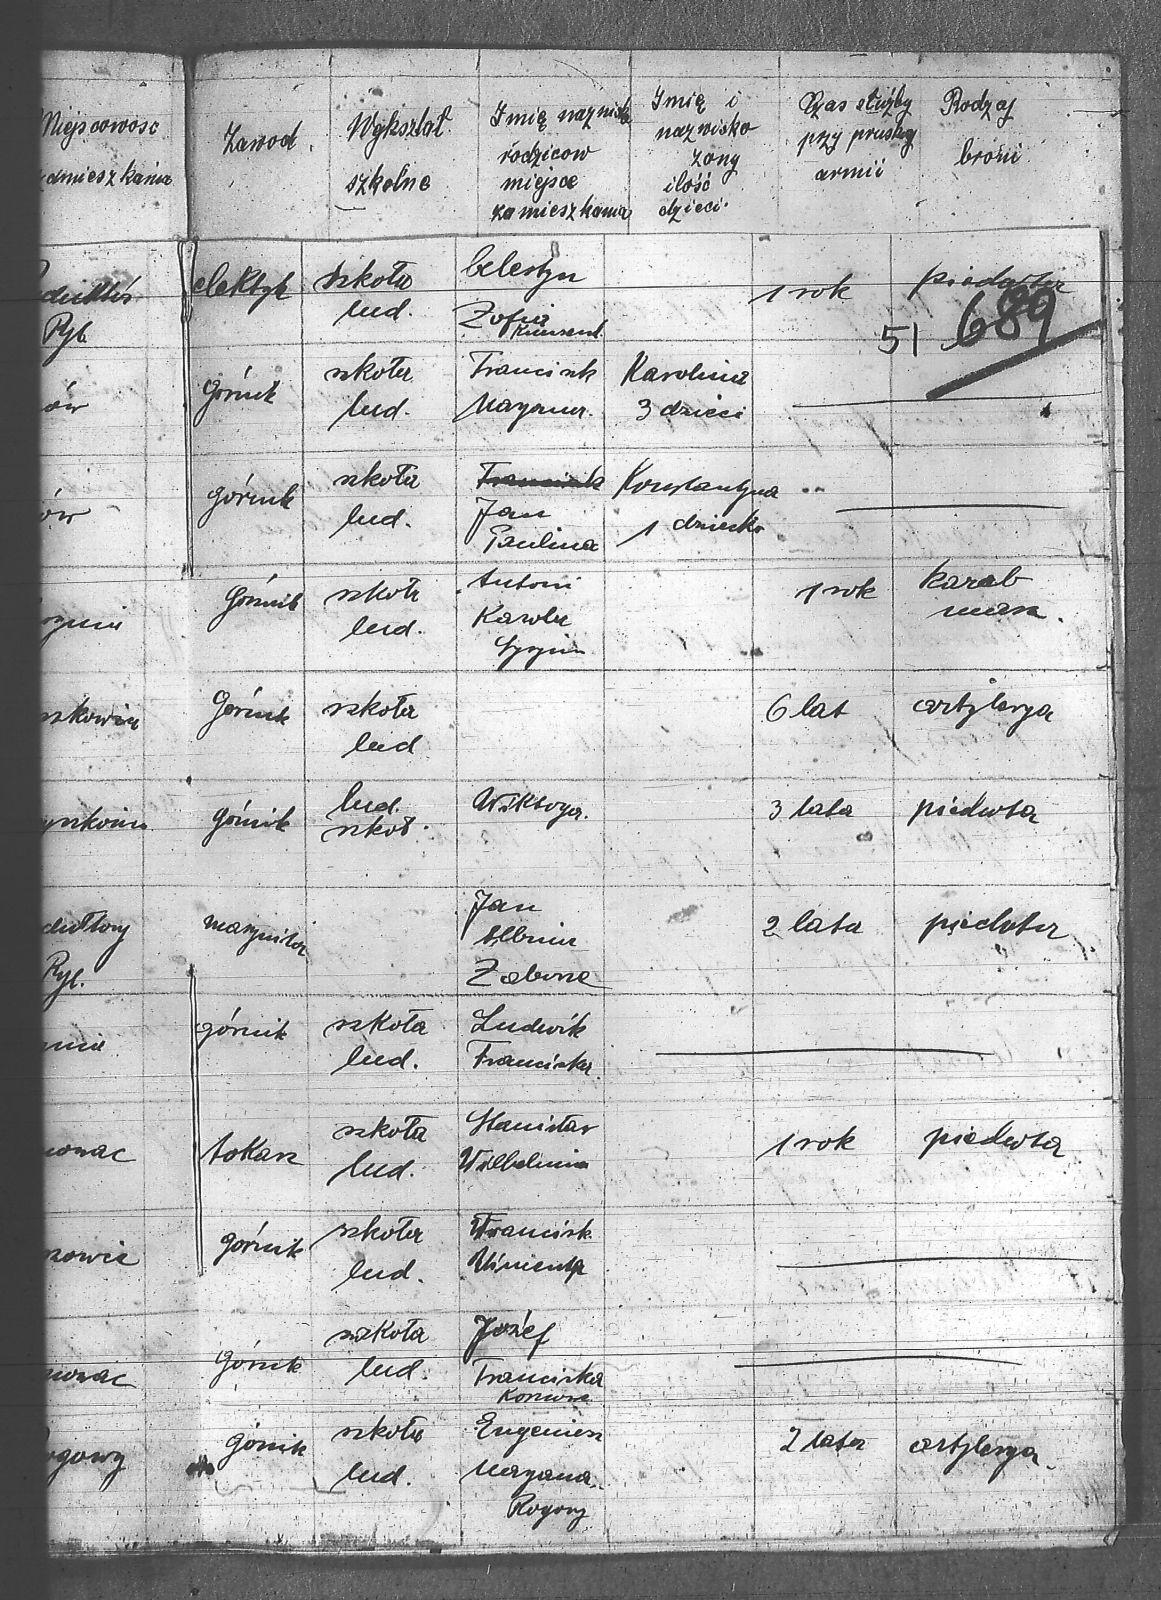 Miejscowość
zamieszkania
Zawod.
Wykształ.
szkolne
Imię nazwisko
rodzicow
miejsce
zamieszkania
Imię i
nazwisko
żony
ilość
dzieci.
Czas służby
przy pruskiej
armii
Rodzaj
broni
Ryb
elektryk
szkoła
lud.
Celestyn
Zofia
1 rok
piechota
51 689
górnik
szkoła
lud.
Franciszk
Maryanna
Karolina
3 dzieci
górnik
szkoła
lud.
Franciszk
Jan
Paulina
Konstantyna
1 dziecko
górnik
szkoła
lud.
Antoni
Karolina
1 rok
karab
masz.
górnik
szkoła
lud
6 lat
artylerya
górnik
lud.
szkoł.
Wiktorya.
3 lata
piechota
Ryb.
Jan
Albina
Zabrze
2 lata
piechota
górnik
szkoła
lud.
Ludwik
Franciszka
tokarz
szkoła
lud.
Stanisław
Wilhelmina
1 rok
piechota
górnik
szkoła
lud.
Franciszk
górnik
szkoła
lud.
Józef
Franciszka
górnik
szkoła
lud.
Eugeniusz
Maryanna
Rogowy
2 lata
artylerya